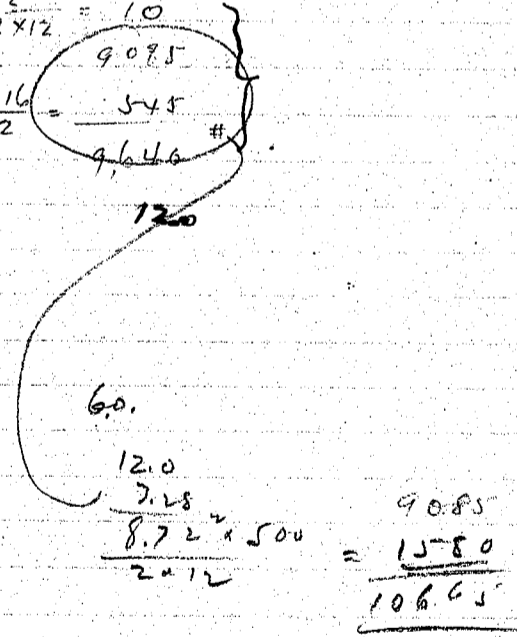 2 × 12 = 10
9095
16
2 = 545
#
9,640
12.0
6.0.
12.0
3.28
8.72² × 500
2 × 12
=
9085
1580
10665